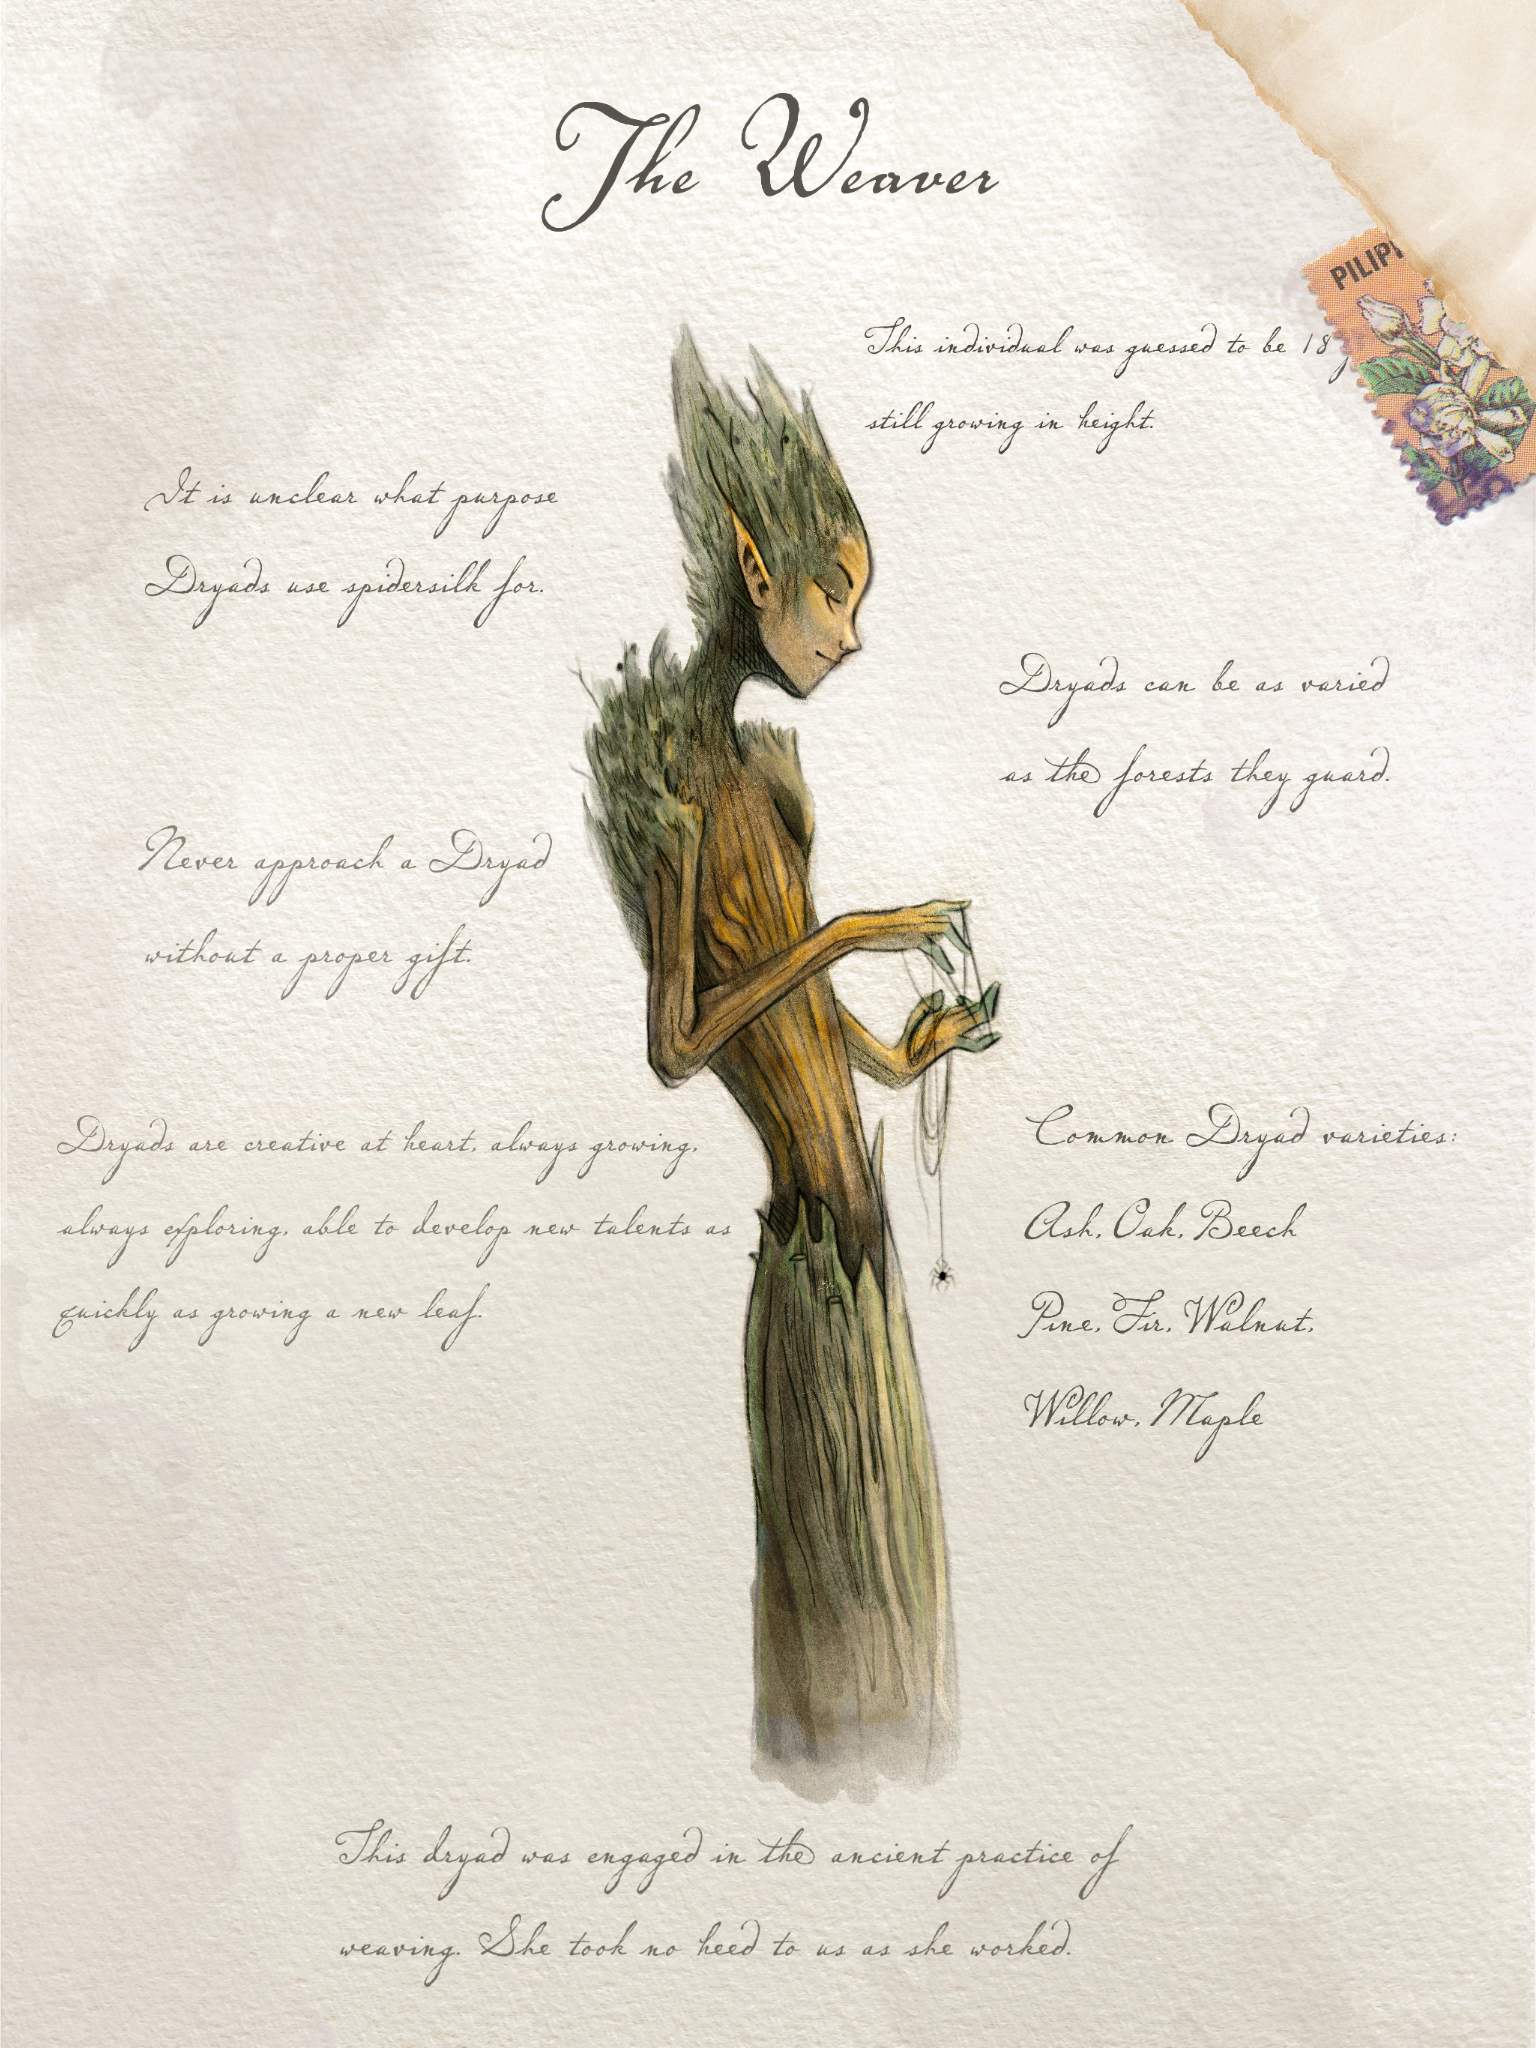 The Weaver
PILIPI
This individual was guessed to be 18
still growing in height.
It is unclear what purpose
Dryads use spidersilk for.
Dryads can be as varied
as the forests they guard.
Never approach a Dryad
without a proper gift.
Dryads are creative at heart, always growing,
always exploring, able to develop new talents as
quickly as growing a new leaf.
Common Dryad varieties:
Ash, Oak, Beech
Pine, Fir, Walnut,
Willow, Maple
This dryad was engaged in the ancient practice of
weaving. She took no heed to us as she worked.